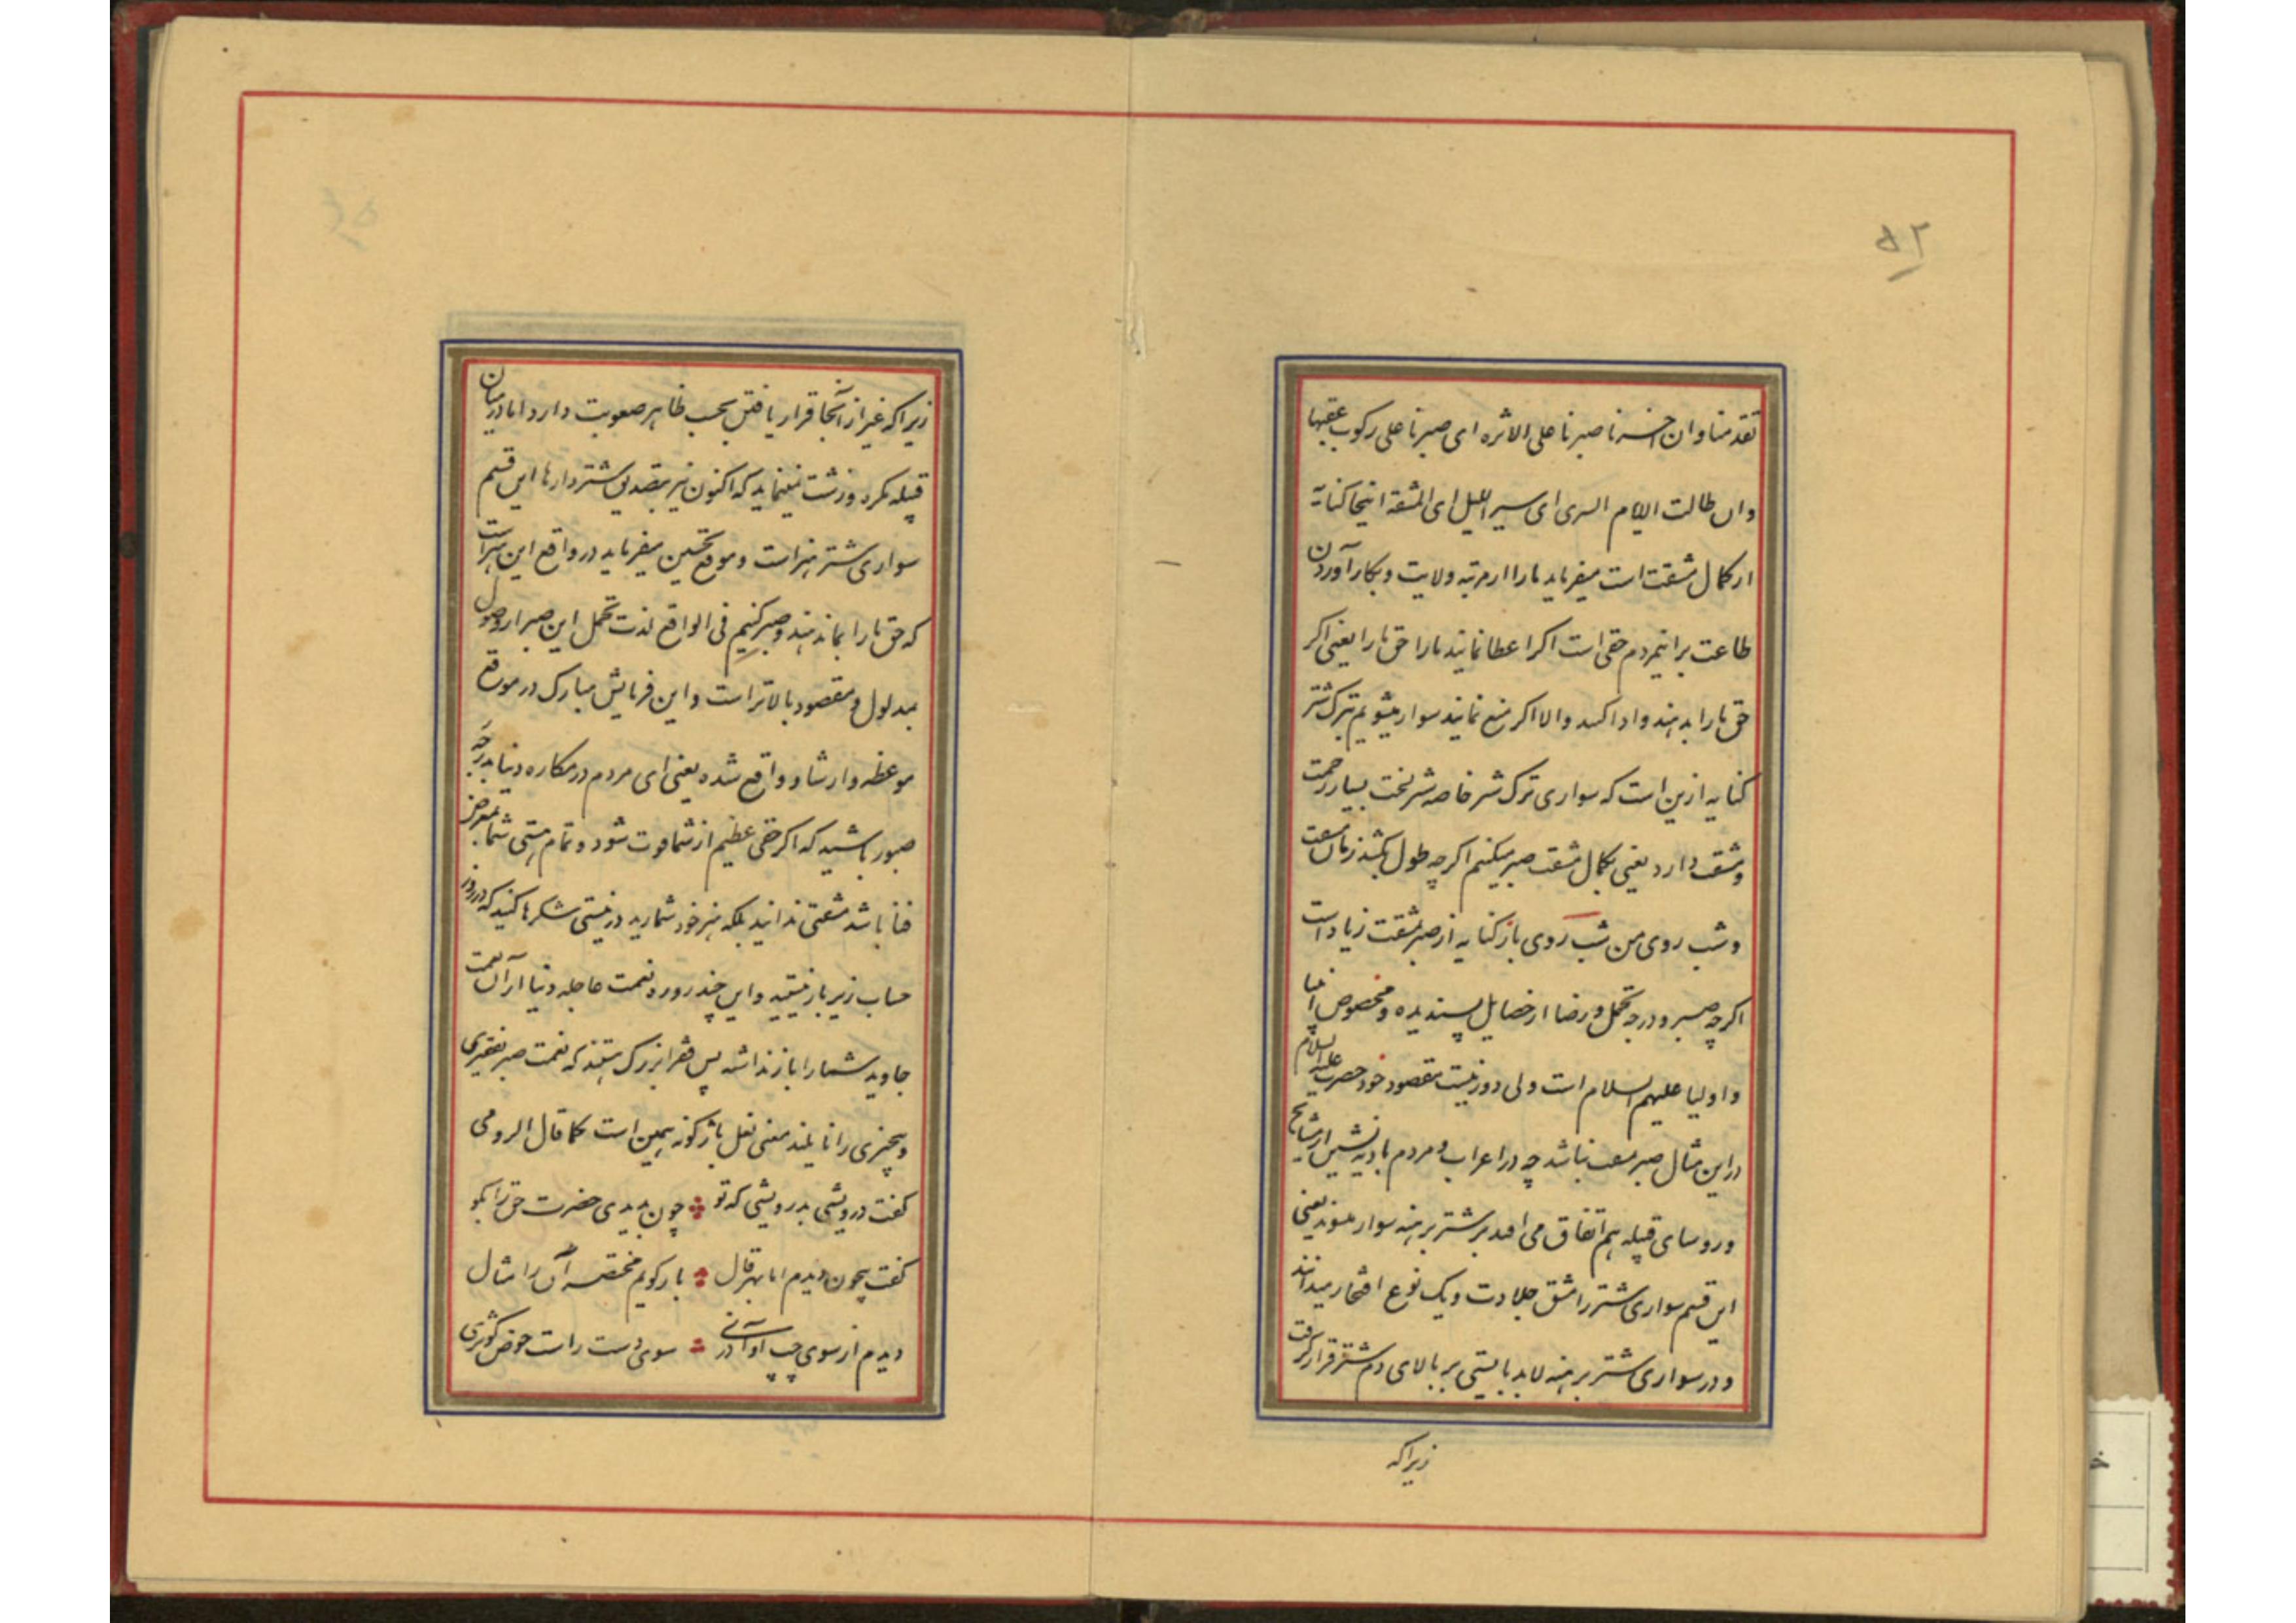 ۵۲
تقدمنا وان اخرنا صبرنا علی الاثره ای صبرنا علی رکوب عقبها
وان طالت الایام السری ای سیر اللیل ای المشقة اینجا کنایة
از کمال مشقت است میفرماید ما را از مرتبه ولایت و بکار آوردن
طاعت بر اینمردم حقی است اکر اعطا نمایند ما را حق ما را یعنی اکر
حق ما را بدهند و ادا کنند والا اکر منع نمایند سوار میشویم بترک شتر
کنایه ازین است که سواری ترک شتر خاصه شتر لخت بسیار زحمت
و مشقت دارد یعنی بکمال مشقت صبر میکنیم اکرچه طول بکشد زمان مشقت
و شب روی من شب روی باز کنایه از صبر بمشقت زیاد است
اکرچه صبر و درجه تحمل و رضا از خصایل پسندیده و مخصوص انبیا
و اولیا علیهم السلام است ولی دور نیست مقصود خود حضرت علیه السلام
در این مثال صبر صعب نباشد چه در اعراب و مردم بادیه نشین از مشایخ
و روسای قبیله هم اتفاق می افتد بر شتر برهنه سوار میشوند یعنی
این قسم سواری شتر را مشق جلادت و یک نوع افتخار میدانند
و در سواری شتر برهنه لابد بایستی بر بالای دم شتر قرار کرفت
زیرا که
زیرا که غیر از آنجا قرار یافتن بحسب ظاهر صعوبت دارد اما در میان
قبیله مکرد و زشت نمینماید که اکنون نیز بتصدیق شتردارها این قسم
سواری شتر هنر است و موقع تحسین میفرماید در واقع این هنر است
که حق ما را بما ندهند و صبر کنیم فی الواقع لذت تحمل این صبر از وصول
بمدلول و مقصود بالاتر است و این فرمایش مبارک در موقع
موعظه و ارشاد واقع شده یعنی ای مردم در مکاره دنیا بدرجه
صبور باشید که اکر حقی عظیم از شما فوت شود و تمام هستی شما بمعرض
فنا باشد مشقتی ندانید بلکه هنر خود شمارید در نیستی شکرها کنید که در روز
حساب زیر بار نیستید و این چند روزه نعمت عاجله دنیا از آن نعمت
جاوید شما را باز نداشته پس فقرا بزرک هستند که نعمت صبر بفقیری
و بیچیزی را نایلند معنی نعل باژکونه همین است کما قال الرومی
کفت درویشی بدرویشی که تو چون بدیدی حضرت حق را بکو
کفت بیچون دیدم اما بهر قال بازکویم مختصر آن را مثال
دیدم از سوی چپ او آذری سوی دست راست حوض کوثری